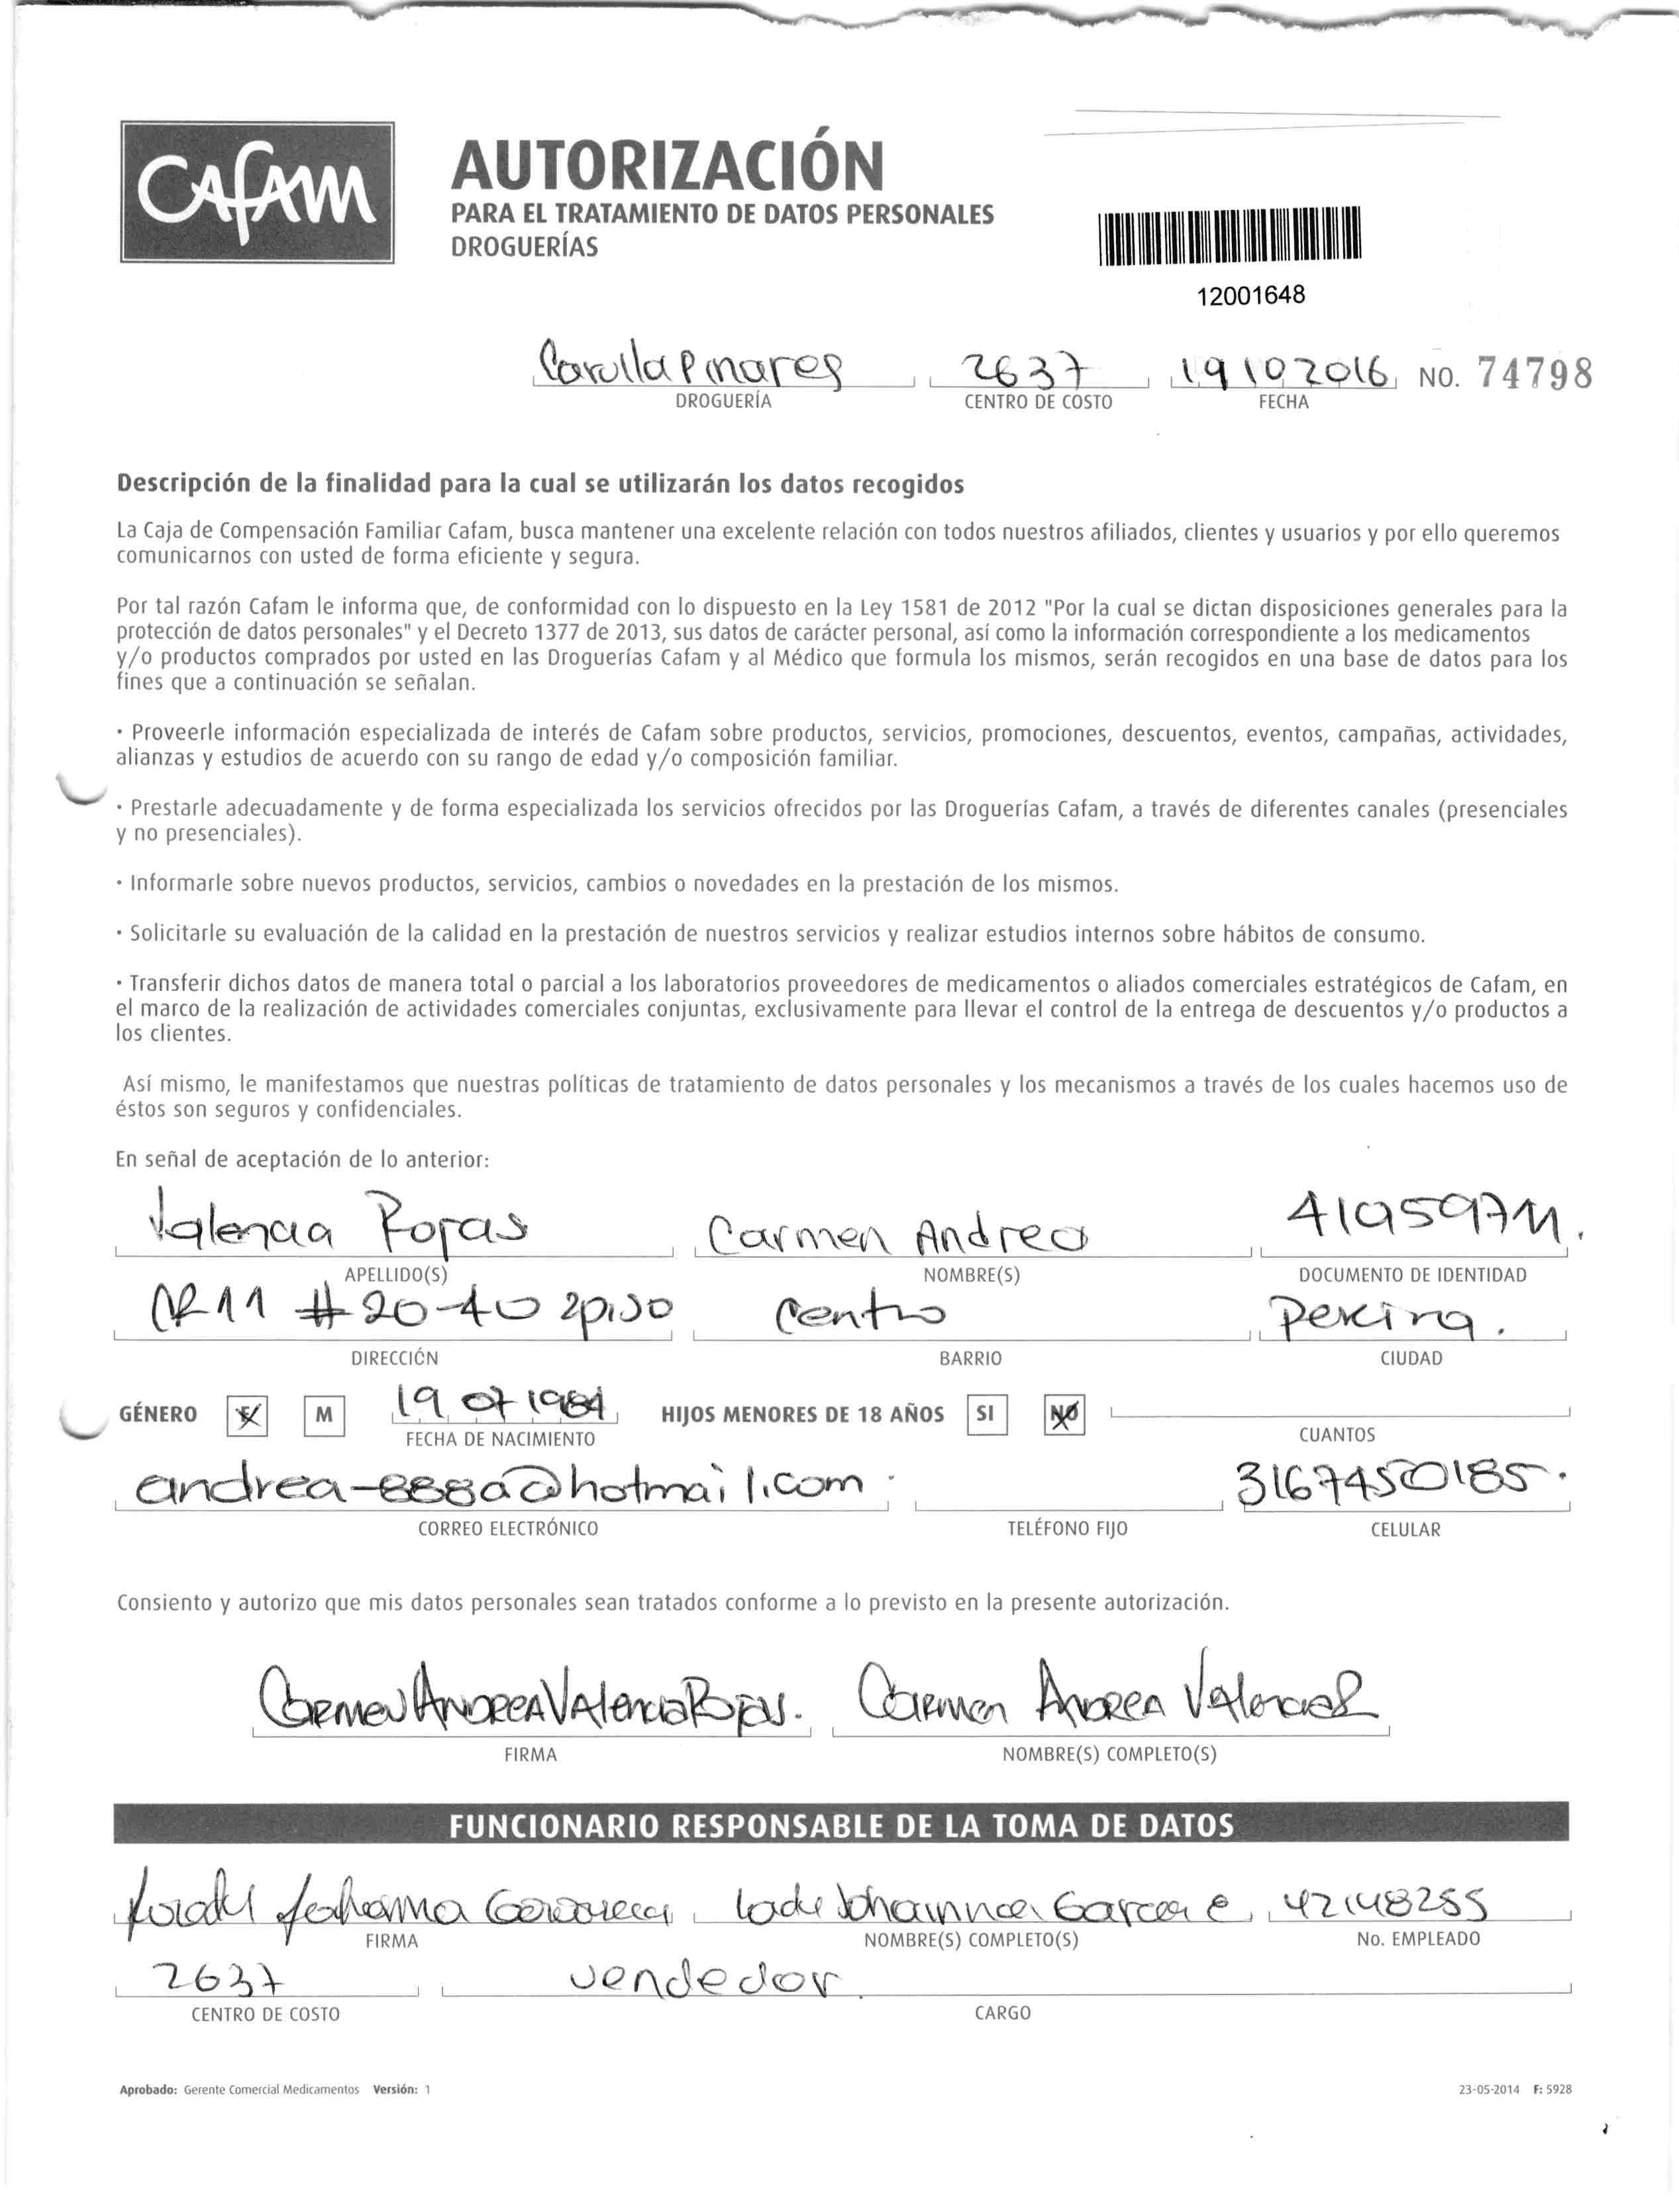 CAFAM
AUTORIZACIÓN
PARA EL TRATAMIENTO DE DATOS PERSONALES
DROGUERÍAS
12001648
Carulla Pinares 2637 19 10 2016 NO. 74798
DROGUERÍA CENTRO DE COSTO FECHA
Descripción de la finalidad para la cual se utilizarán los datos recogidos
La Caja de Compensación Familiar Cafam, busca mantener una excelente relación con todos nuestros afiliados, clientes y usuarios y por ello queremos
comunicarnos con usted de forma eficiente y segura.
Por tal razón Cafam le informa que, de conformidad con lo dispuesto en la Ley 1581 de 2012 "Por la cual se dictan disposiciones generales para la
protección de datos personales" y el Decreto 1377 de 2013, sus datos de carácter personal, así como la información correspondiente a los medicamentos
y/o productos comprados por usted en las Droguerías Cafam y al Médico que formula los mismos, serán recogidos en una base de datos para los
fines que a continuación se señalan.
· Proveerle información especializada de interés de Cafam sobre productos, servicios, promociones, descuentos, eventos, campañas, actividades,
alianzas y estudios de acuerdo con su rango de edad y/o composición familiar.
· Prestarle adecuadamente y de forma especializada los servicios ofrecidos por las Droguerías Cafam, a través de diferentes canales (presenciales
y no presenciales).
· Informarle sobre nuevos productos, servicios, cambios o novedades en la prestación de los mismos.
· Solicitarle su evaluación de la calidad en la prestación de nuestros servicios y realizar estudios internos sobre hábitos de consumo.
· Transferir dichos datos de manera total o parcial a los laboratorios proveedores de medicamentos o aliados comerciales estratégicos de Cafam, en
el marco de la realización de actividades comerciales conjuntas, exclusivamente para llevar el control de la entrega de descuentos y/o productos a
los clientes.
Así mismo, le manifestamos que nuestras políticas de tratamiento de datos personales y los mecanismos a través de los cuales hacemos uso de
éstos son seguros y confidenciales.
En señal de aceptación de lo anterior:
Valencia Rojas Carmen Andrea 41959711.
APELLIDO(S) NOMBRE(S) DOCUMENTO DE IDENTIDAD
CR 11 # 20-40 2piso Centro Pereira.
DIRECCIÓN BARRIO CIUDAD
GÉNERO F M 19 07 1984 HIJOS MENORES DE 18 AÑOS SI NO
FECHA DE NACIMIENTO CUANTOS
andrea-888a@hotmail.com. 3167450185.
CORREO ELECTRÓNICO TELÉFONO FIJO CELULAR
Consiento y autorizo que mis datos personales sean tratados conforme a lo previsto en la presente autorización.
Carmen Andrea Valencia Rojas. Carmen Andrea Valencia R
FIRMA NOMBRE(S) COMPLETO(S)
FUNCIONARIO RESPONSABLE DE LA TOMA DE DATOS
Johanna Garcia e 42148255
FIRMA NOMBRE(S) COMPLETO(S) No. EMPLEADO
2637 vendedor
CENTRO DE COSTO CARGO
Aprobado: Gerente Comercial Medicamentos Versión: 1 23-05-2014 F: 5928